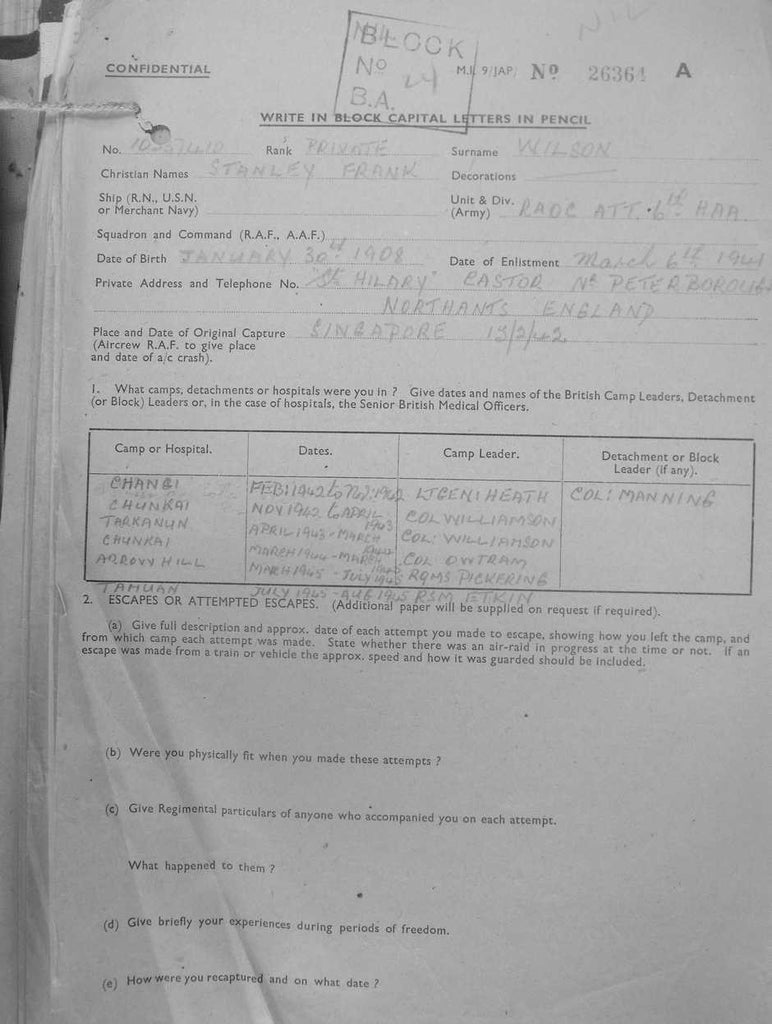 NIL
BLOCK
No 24
B.A.
CONFIDENTIAL
M.I. 9/JAP/ No 26364 A
WRITE IN BLOCK CAPITAL LETTERS IN PENCIL
No. Rank PRIVATE Surname WILSON
Christian Names STANLEY FRANK Decorations
Ship (R.N., U.S.N. or Merchant Navy)
Unit & Div. (Army) RAOC ATT. 6th HAA
Squadron and Command (R.A.F., A.A.F.)
Date of Birth JANUARY 30th 1908 Date of Enlistment March 6th 1941
Private Address and Telephone No. "St HILARY" CASTOR Nr PETERBOROUGH
NORTHANTS ENGLAND
Place and Date of Original Capture SINGAPORE 15/2/42
(Aircrew R.A.F. to give place
and date of a/c crash).
1. What camps, detachments or hospitals were you in ? Give dates and names of the British Camp Leaders, Detachment
(or Block) Leaders or, in the case of hospitals, the Senior British Medical Officers.
Camp or Hospital. Dates. Camp Leader. Detachment or Block Leader (if any).
CHANGI FEB: 1942 to Nov: 1942 LTGENL HEATH COL: MANNING
CHUNKAI NOV 1942 to APRIL 1943 COL WILLIAMSON
TARKANUN APRIL 1943 - MARCH COL: WILLIAMSON
CHUNKAI MARCH 1944 - MARCH COL OWTRAM
ARROW HILL MARCH 1945 - JULY 1945 RQMS PICKERING
TAMUAN JULY 1945 - AUG 1945 RSM ETKIN
2. ESCAPES OR ATTEMPTED ESCAPES. (Additional paper will be supplied on request if required).
(a) Give full description and approx. date of each attempt you made to escape, showing how you left the camp, and
from which camp each attempt was made. State whether there was an air-raid in progress at the time or not. If an
escape was made from a train or vehicle the approx. speed and how it was guarded should be included.
(b) Were you physically fit when you made these attempts ?
(c) Give Regimental particulars of anyone who accompanied you on each attempt.
What happened to them ?
(d) Give briefly your experiences during periods of freedom.
(e) How were you recaptured and on what date ?